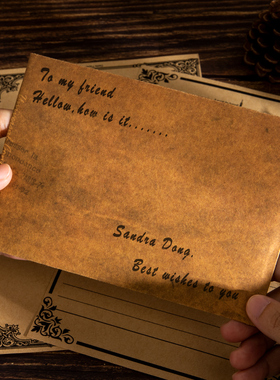 To my friend
Hellow,how is it.......
Sandra Dong.
Best wishes to you